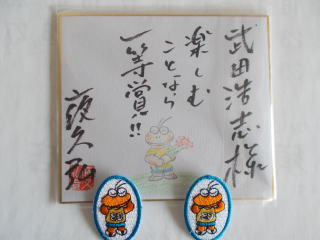 武田浩志様
楽しむ
ことなら
一等賞!!